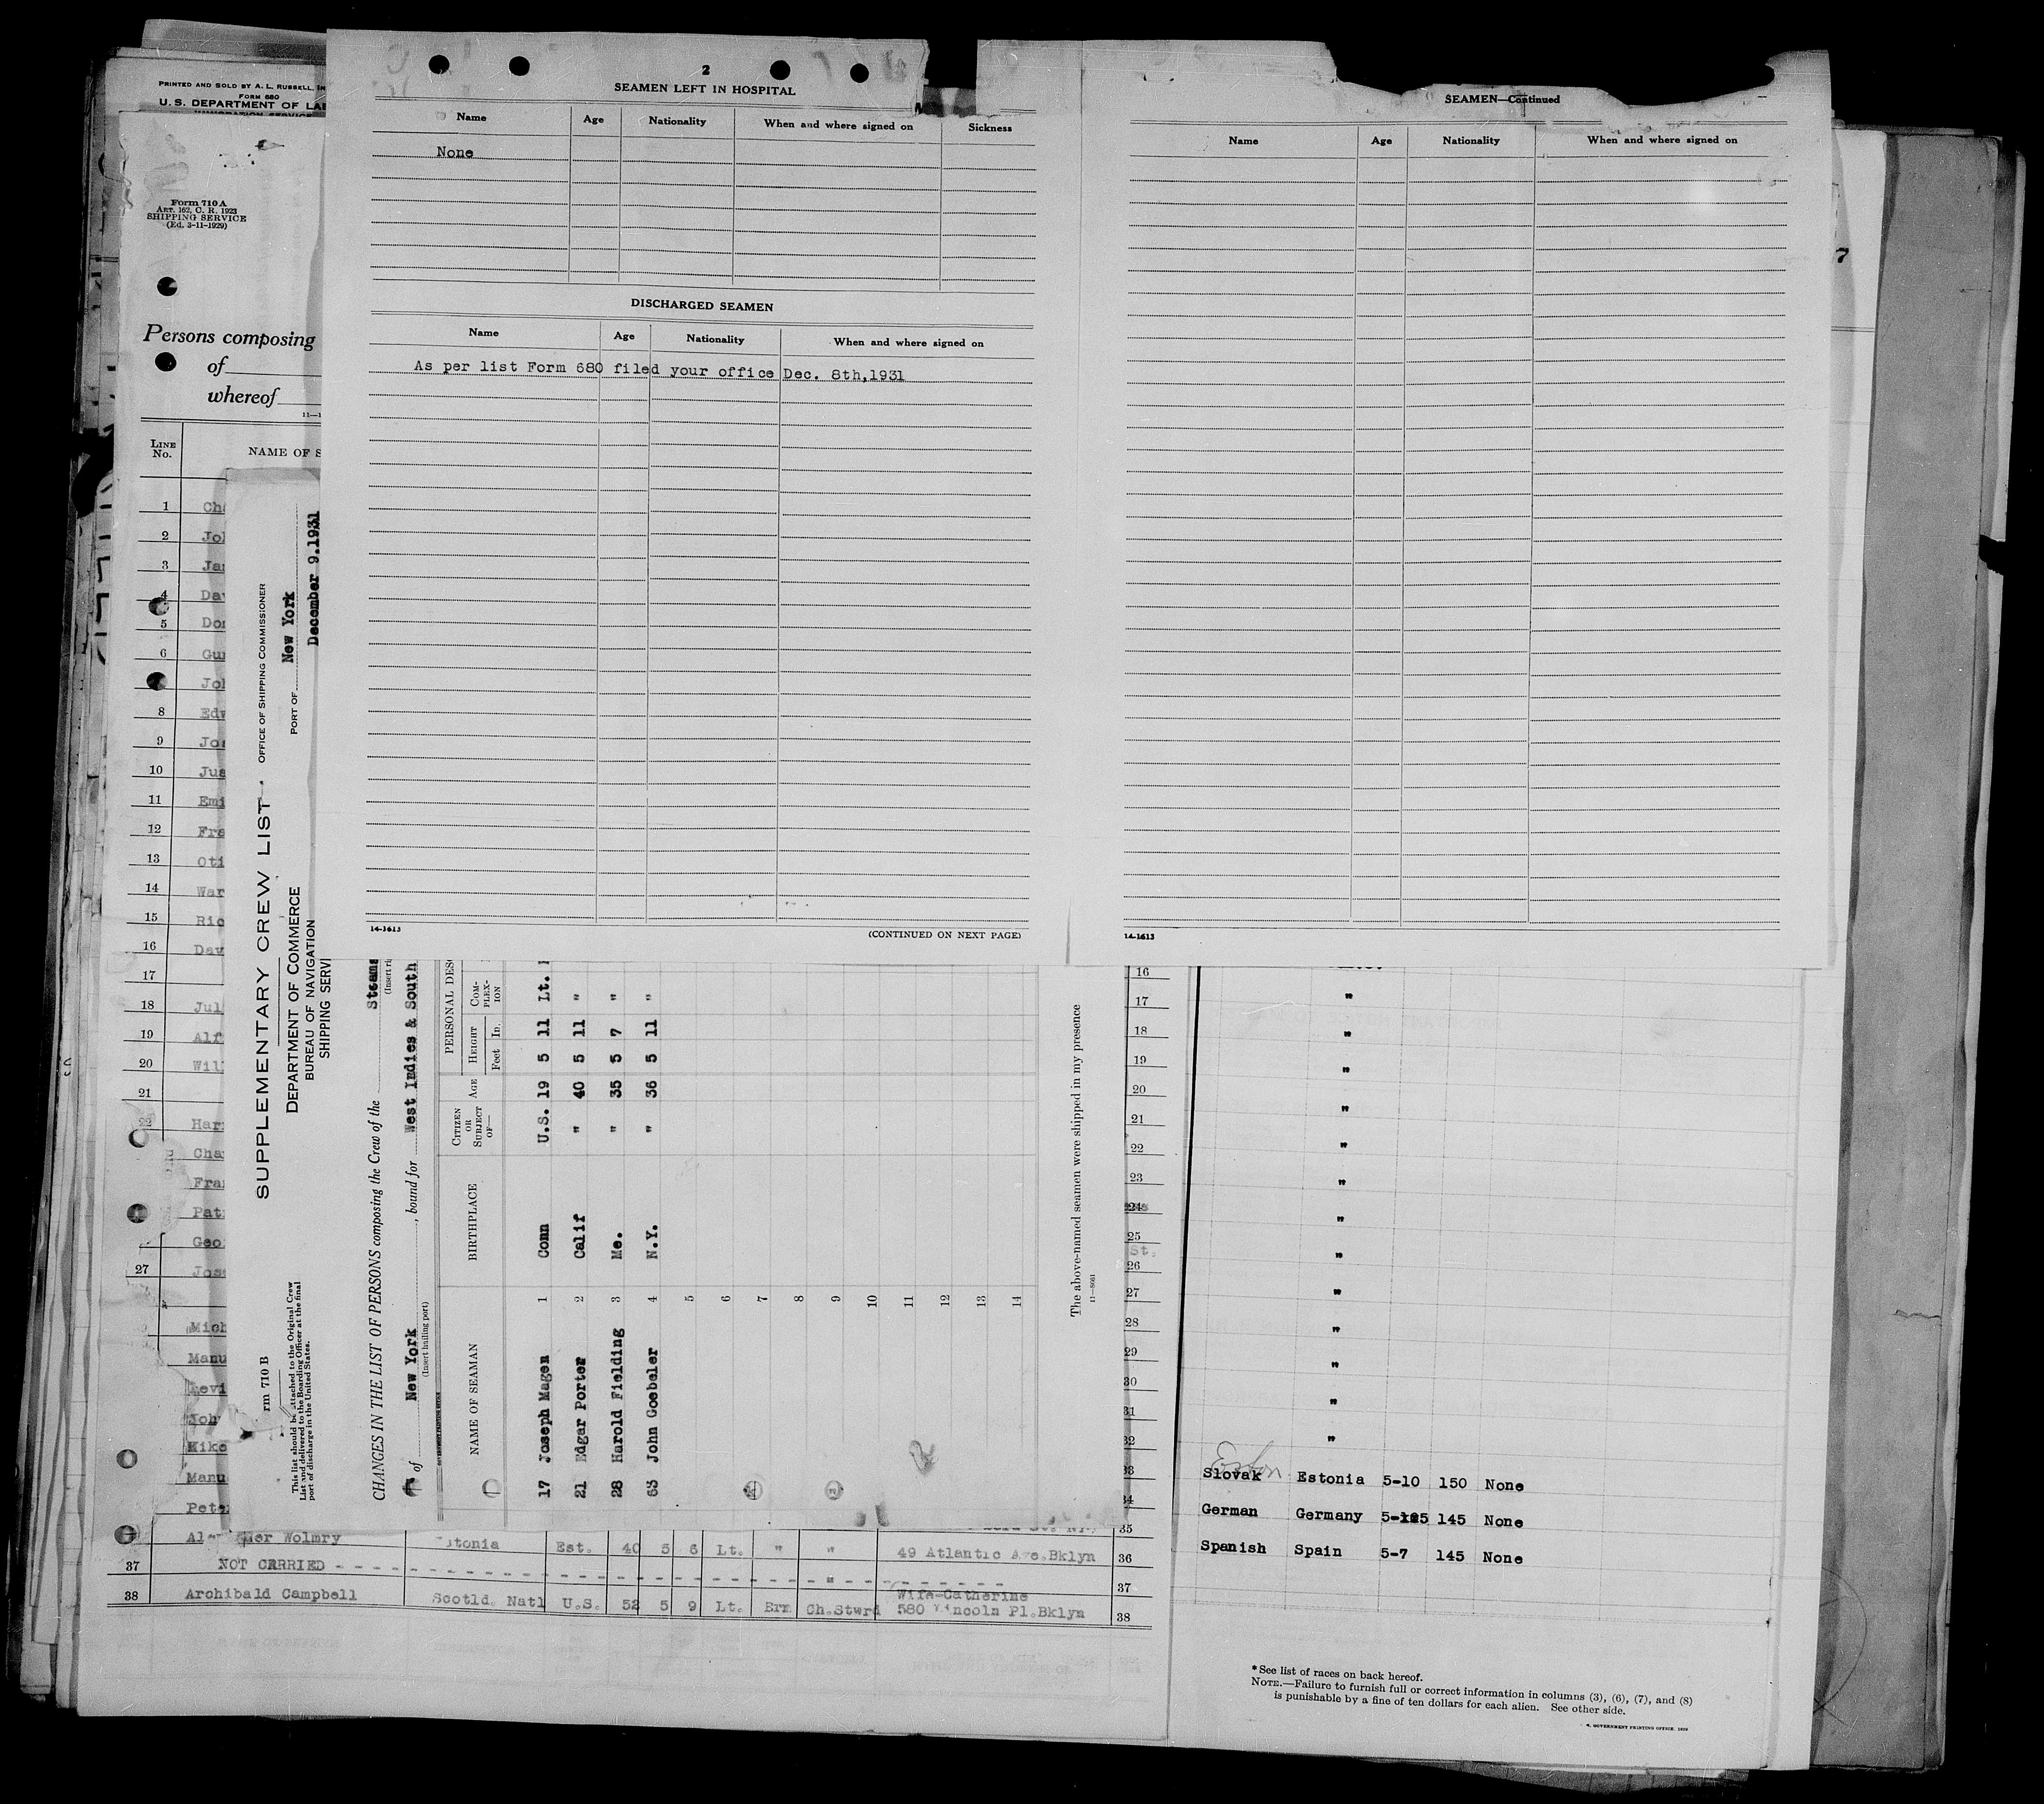 PRINTED AND SOLD BY A. L. RUSSELL, IN
FORM 680
U. S. DEPARTMENT OF LAB
Form 710 A
ART. 162, C. R. 1923
SHIPPING SERVICE
(Ed. 3-11-1929)
Persons composing
of
whereof
11—1
LINE No.
NAME OF S
1 Cha
2 Joh
3 Jam
4 Dav
5 Don
6 Gun
Joh
8 Edw
9 Jos
10 Jus
11 Emi
12 Fra
13 Oti
14 War
15 Ric
16 Dav
17
18 Jul
19 Alf
20 Wil
21
22 Har
Cha
Fra
Pat
Geo
27 Jos
Mich
Manu
Levi
Joh
Kike
Manu
Pete
2
SEAMEN LEFT IN HOSPITAL
Name Age Nationality When and where signed on Sickness
None
DISCHARGED SEAMEN
Name Age Nationality When and where signed on
As per list Form 680 filed your office Dec. 8th,1931
14-1613
(CONTINUED ON NEXT PAGE)
SEAMEN—Continued
Name Age Nationality When and where signed on
14-1613
rm 710 B
This list should be attached to the Original Crew
List and delivered to the Boarding Officer at the final
port of discharge in the United States.
SUPPLEMENTARY CREW LIST
OFFICE OF SHIPPING COMMISSIONER
DEPARTMENT OF COMMERCE
BUREAU OF NAVIGATION
SHIPPING SERVI
PORT OF New York
December 9.1931
CHANGES IN THE LIST OF PERSONS composing the Crew of the Steams
(Insert ri
of New York, bound for West Indies & South
(Insert hailing port)
NAME OF SEAMAN BIRTHPLACE CITIZEN OR SUBJECT OF— AGE PERSONAL DESC
HEIGHT Feet In. COM-PLEX-ION
17 Joseph Magen 1 Conn U.S. 19 5 11 Lt.
21 Edgar Porter 2 Calif " 40 5 11 "
28 Harold Fielding 3 Me. " 35 5 7 "
63 John Goebeler 4 N.Y. " 36 5 11 "
5
6
7
8
9
10
11
12
13
14
The above-named seamen were shipped in my presence
16
17 "
18 "
19 "
20 "
21 "
22 "
23 "
24 "
25 "
St.
26
27 "
28 "
29 "
30 "
31 "
32 "
33
Eston
Slovak Estonia 5-10 150 None
34
German Germany 145 None
35
Spanish Spain 5-7 145 None
Wolmry Est. 40 5 6 Lt. " " 49 Atlantic Ave.Bklyn 36
37 NOT CARRIED - - - " - - - 37
Wife-Catherine
38 Archibald Campbell Scotld. Natl U.S. 52 5 9 Lt. Brn Ch.Stwrd 580 Lincoln Pl.Bklyn 38
* See list of races on back hereof.
NOTE.—Failure to furnish full or correct information in columns (3), (6), (7), and (8)
is punishable by a fine of ten dollars for each alien. See other side.
GOVERNMENT PRINTING OFFICE. 1929
7